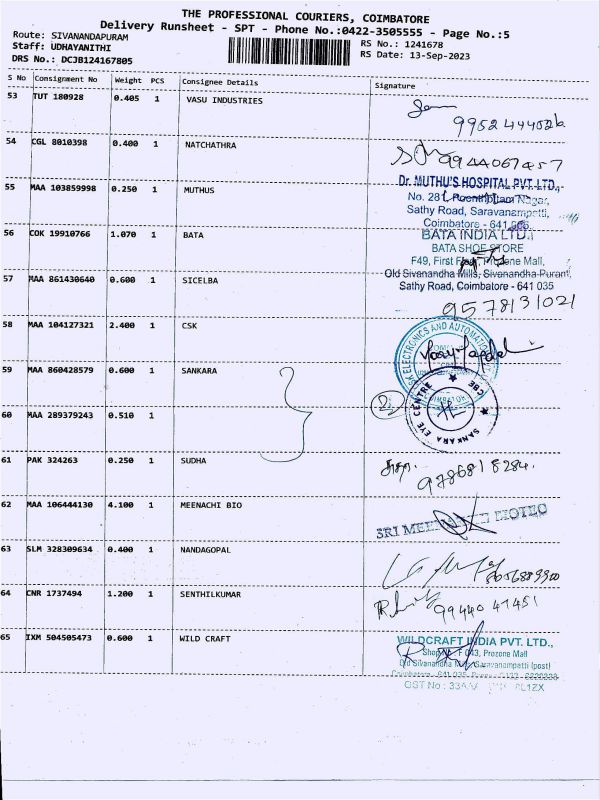 THE PROFESSIONAL COURIERS, COIMBATORE
Delivery Runsheet - SPT - Phone No.:0422-3505555 - Page No.:5
Route: SIVANANDAPURAM
Staff: UDHAYANITHI
RS No.: 1241678
DRS No.: DCJB124167805
RS Date: 13-Sep-2023
S No Consignment No Weight PCS Consignee Details Signature
53 TUT 180928 0.405 1 VASU INDUSTRIES
54 CGL 8010398 0.400 1 NATCHATHRA
55 MAA 103859998 0.250 1 MUTHUS
Dr. MUTHU'S HOSPITAL PVT. LTD.,
Sathy Road, Saravanampatti,
Coimbatore - 641
56 COK 19910766 1.070 1 BATA
BATA INDIA LTD.
BATA SHOE STORE
F49, First Floor, Prozone Mall,
Old Sivanandha Mills, Sivanandha Puram,
57 MAA 861430640 0.600 1 SICELBA
Sathy Road, Coimbatore - 641 035
9578131021
58 MAA 104127321 2.400 1 CSK
ELECTRONICS AND AUTOMATION
59 MAA 860428579 0.600 1 SANKARA
SANKARA EYE CENTRE CBE
60 MAA 289379243 0.510 1
61 PAK 324263 0.250 1 SUDHA
9786818284.
62 MAA 106444130 4.100 1 MEENACHI BIO
SRI
63 SLM 328309634 0.400 1 NANDAGOPAL
64 CNR 1737494 1.200 1 SENTHILKUMAR
99440 47451
65 IXM 504505473 0.600 1 WILD CRAFT
WILDCRAFT INDIA PVT. LTD.,
Prozone Mall
Saravanampatti (post)
GST No : 33